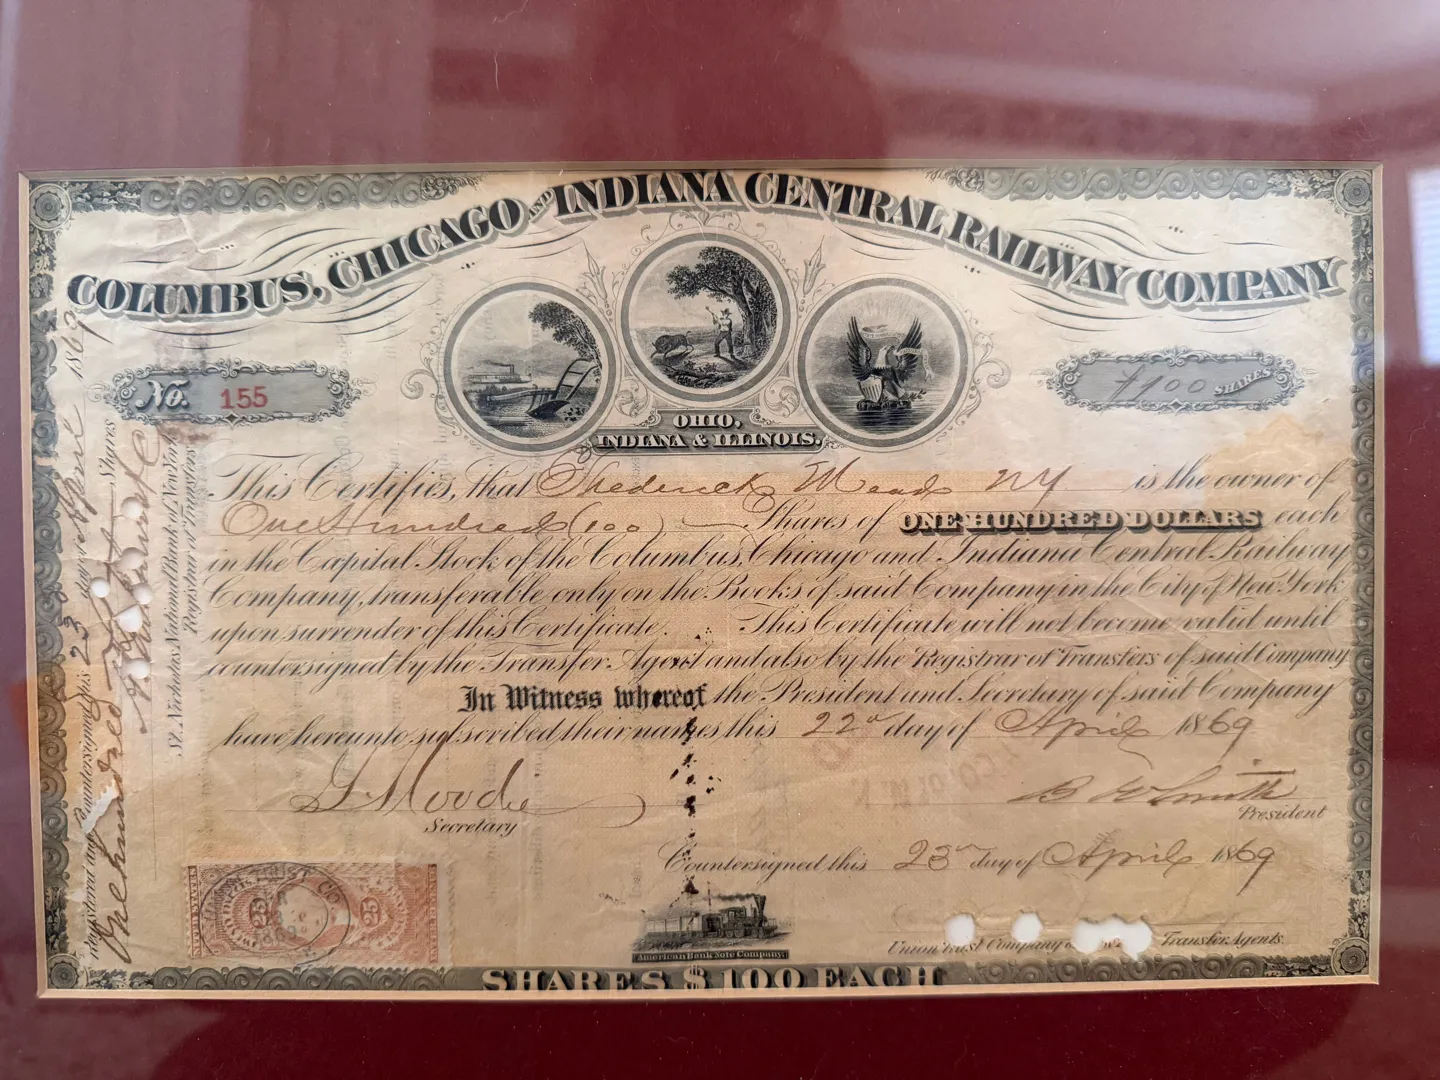 COLUMBUS, CHICAGO AND INDIANA CENTRAL RAILWAY COMPANY
No. 155
100 SHARES
OHIO,
INDIANA & ILLINOIS.
This Certifies, that Frederick Meads NY is the owner of
One Hundred (100) Shares of ONE HUNDRED DOLLARS each
in the Capital Stock of the Columbus, Chicago and Indiana Central Railway
Company, transferable only on the Books of said Company in the City of New York
upon surrender of this Certificate. This Certificate will not become valid until
countersigned by the Transfer Agent and also by the Registrar of Transfers of said Company
In Witness whereof the President and Secretary of said Company
have hereunto subscribed their names this 22d day of April 1869
Secretary
B W Smith
President
Countersigned this 23d day of April 1869
Union Trust Company Transfer Agents.
American Bank Note Company.
SHARES $100 EACH
Registered and Countersigned this 23 April 1869
One hundred Shares
St. Nicholas National Bank of New York
Registrar of Transfers
TRUST CO.
25 25